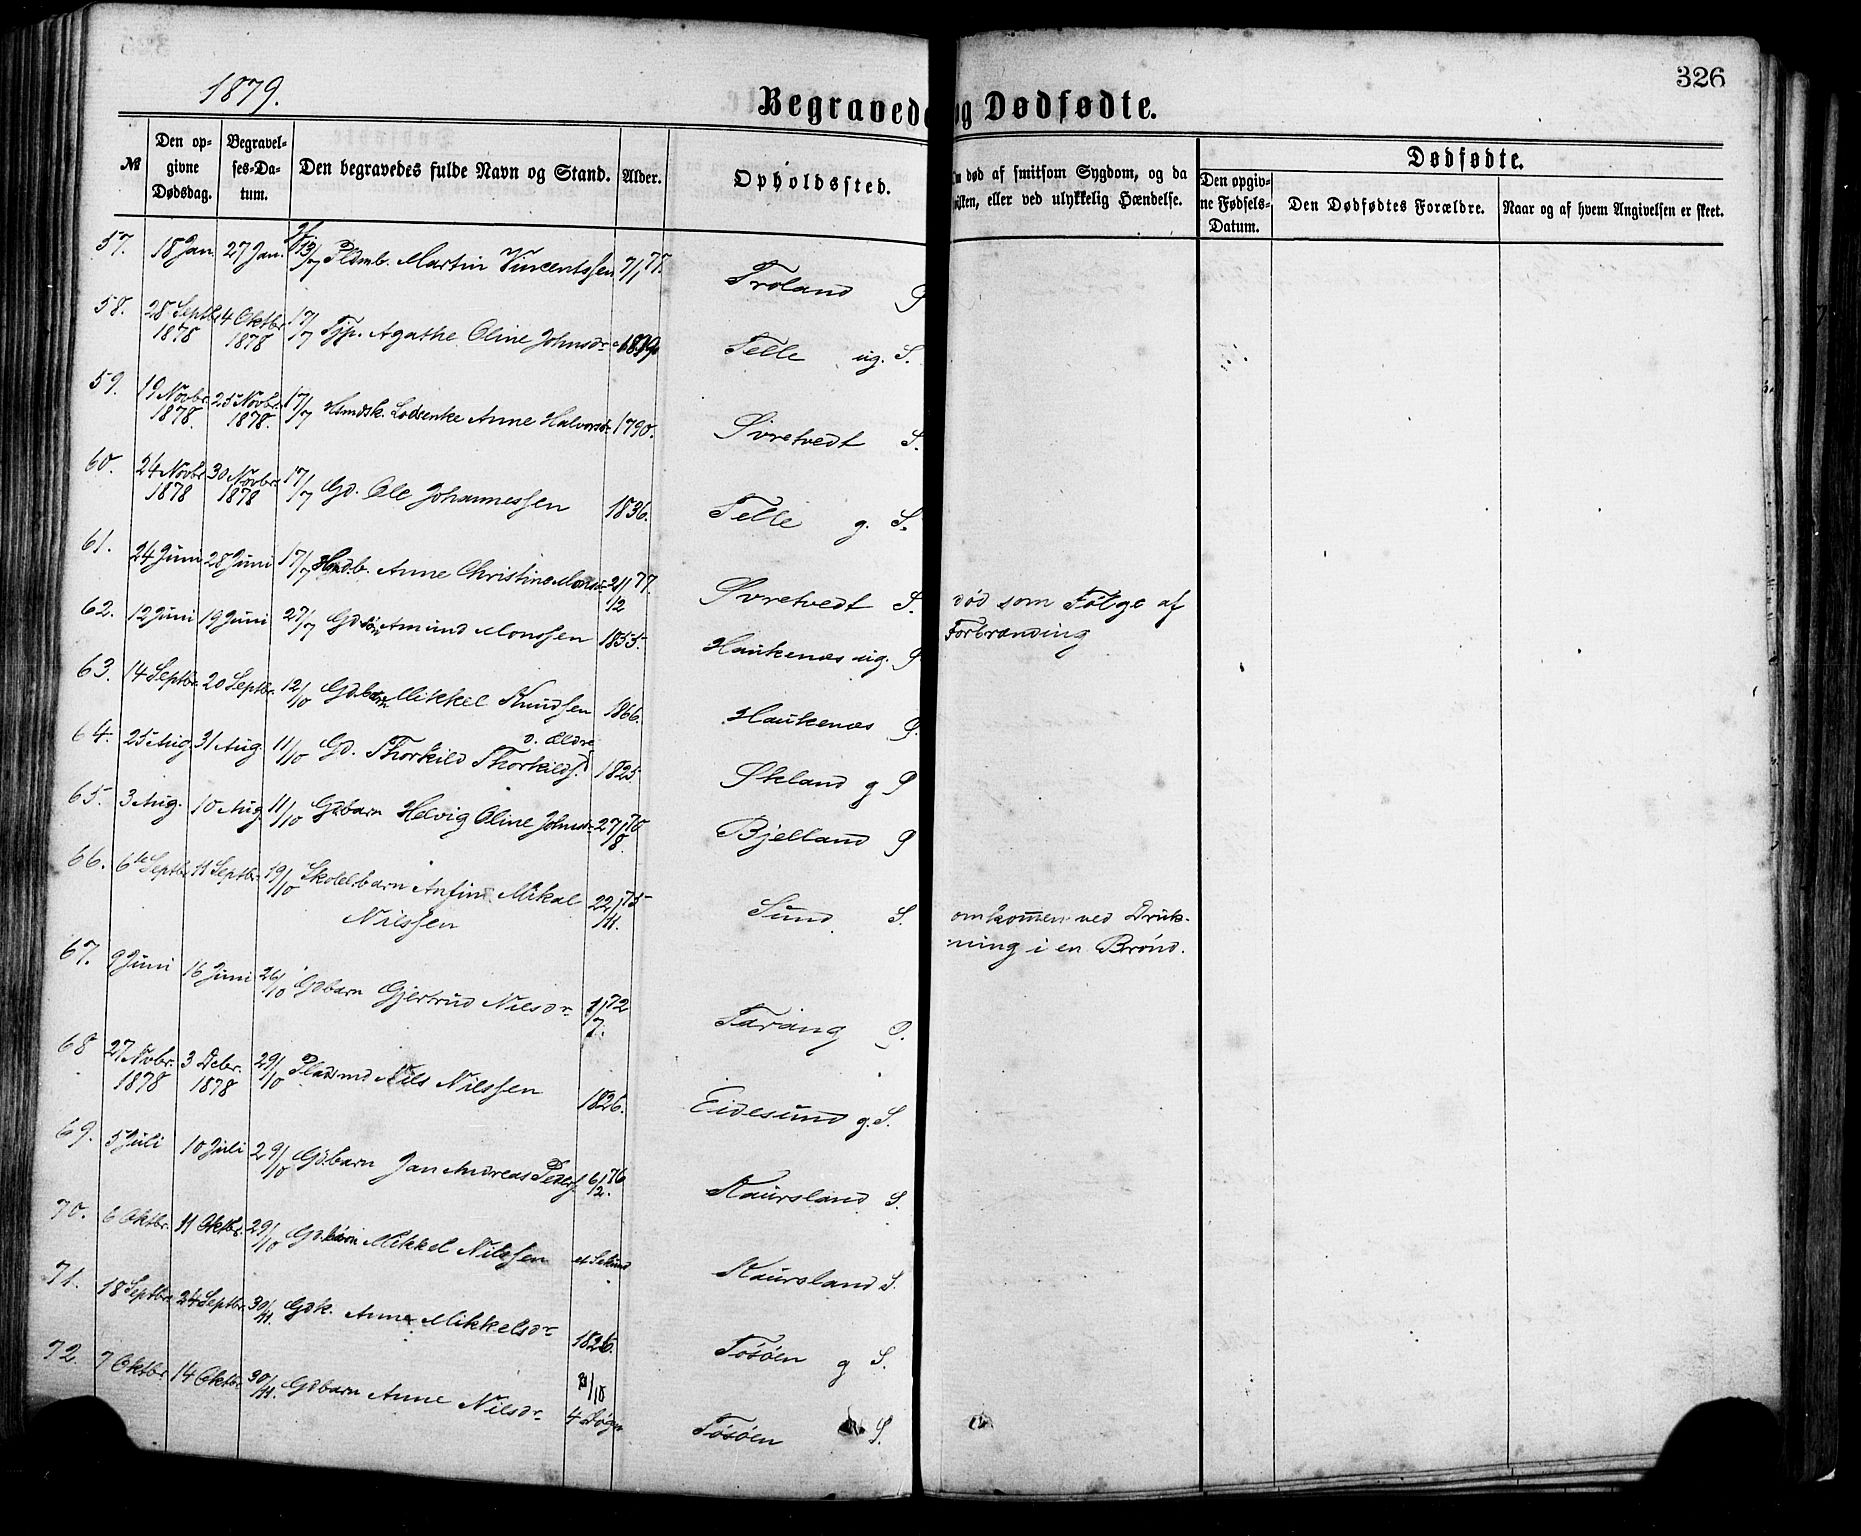 326
1879.
Begravede og Dødfødte.
№
Den op-
givne
Dødsdag.
Begravel-
ses-Da-
tum.
Den begravedes fulde Navn og Stand.
Alder.
Opholdssted.
død af smitsom Sygdom, og da
hvilken, eller ved ulykkelig Hændelse.
Dødfødte.
Den opgiv-
ne Fødsels-
Datum.
Den Dødfødtes Forældre.
Naar og af hvem Angivelsen er skeet.
57. 18 Jan. 27 Jan. 13/7 Pldmb. Martin Vincentssen 7/1 77. Troland P
58. 28 Septbr 1878 4 Oktbr 1878 17/7 Fjp. Agathe Oline Johnsdr Telle ug. S.
59. 19 Novbr. 1878. 25 Novbr. 1878. 17/7 Hmdsk. Lodsenke Anne Halvorsdr 1790. Svretvedt S.
60. 24 Novbr 1878 30 Novbr. 1878 17/7 Gd. Ole Johannessen 1836. Telle g. S.
61. 24 Juni 28 Juni 17/7 Hmdb. Anne Christine Monsdr 21/12 77. Svretvedt S. død som Følge af
Forbrænding
62. 12 Juni 19 Juni 27/7 Gdsøn Amund Monssen 1855. Haukenæs ug. P
63. 14 Septbr. 20 Septbr. 12/10 Gdbarn Mikkel Knudsen 1866. Haukenæs P.
64. 25 Aug 31 Aug 11/10 Gd. Thorkild Thorkilds. d. Ældre 1825 Skeland g P
65. 3 Aug. 10 Aug 11/10 Gdbarn Helvig Oline Johnsdr 27/8 70. Bjelland P
66. 6te Septbr 11 Septbr. 19/10 Skolelsbarn Anfin Mikal
Nilssen 22/11 75. Sund S. omkommen ved Druk-
ning i en Brønd.
67. 9 Juni 16 Juni 26/10 Gdbarn Gjertrud Nilsdr 1/7 72. Tarang P.
68 27 Novbr. 1878 3 Debr. 1878 29/10 Pladsmd Nils Nilssen 1826. Eidesund g. S.
69. 5 Juli 10 Juli 29/10 Gdbarn Jan Andreas Peders 6/2 76. Kaursland S.
70. 6 Oktbr. 11 Oktbr. 29/10 Gdbarn Mikkel Nilssen Kaursland S.
71. 18 Septbr 24 Septbr. 30/11 Gdk. Anna Mikkelsdr 1826. Tøsøen g S.
72. 7 Oktbr 14 Oktbr 30/11 Gdbarn Anne Nilsdr 4 Døgn Tøsøen S.